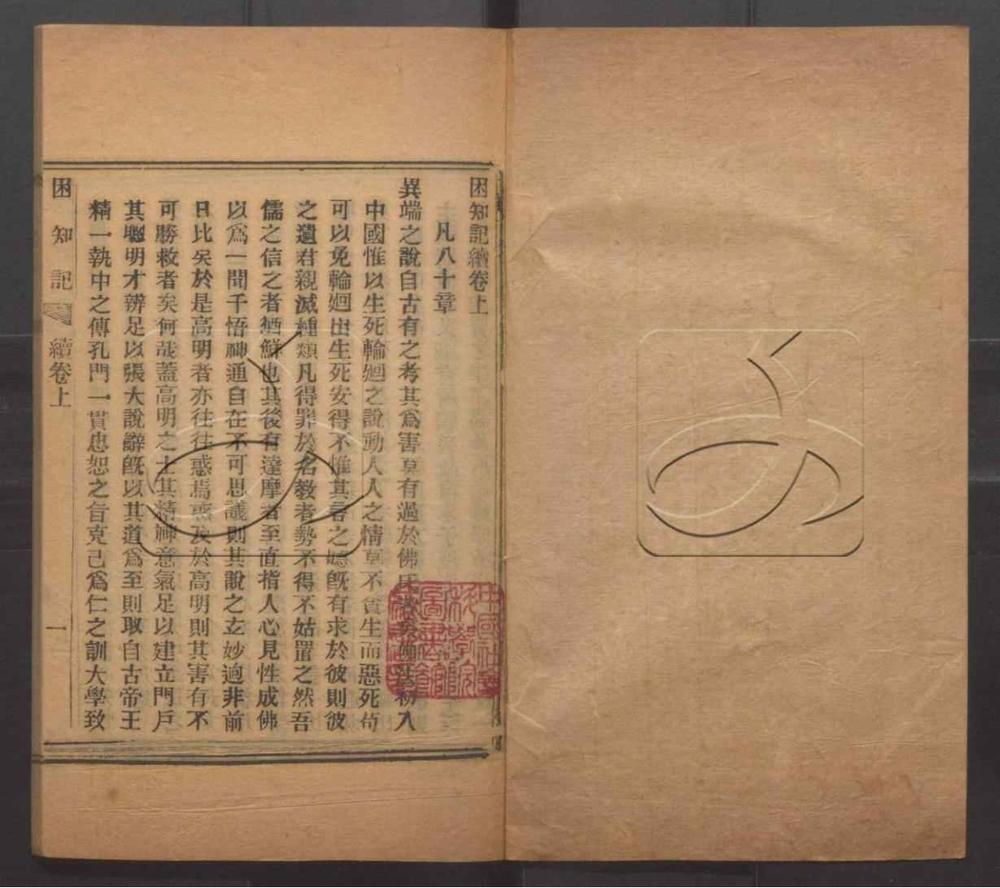 困知記續卷上
凡八十章
異端之說自古有之考其爲害莫有過於佛氏者矣佛法初入
中國惟以生死輪廻之說動人人之情莫不貪生而惡死苟
可以免輪廻出生死安得不惟其言之聽旣有求於彼則彼
之遺君親滅種類凡得罪於名教者勢不得不姑置之然吾
儒之信之者猶鮮也其後有達摩者至直指人心見性成佛
以爲一聞千悟神通自在不可思議則其說之玄妙逈非前
日比矣於是高明者亦往往惑焉惑及於高明則其害有不
可勝救者矣何哉蓋高明之士其精神意氣足以建立門戶
其聰明才辨足以張大說辭旣以其道爲至則取自古帝王
精一執中之傳孔門一貫忠恕之旨克己爲仁之訓大學致
困知記
續卷上
一